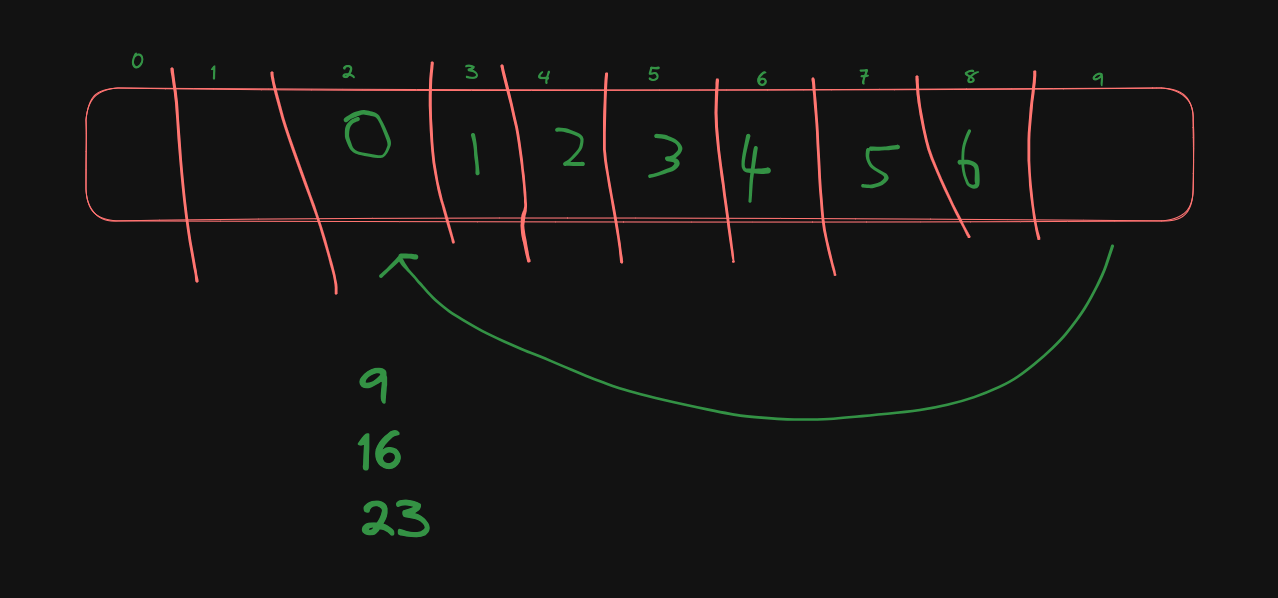 0 1 2 3 4 5 6 7 8 9
0 1 2 3 4 5 6
9
16
23